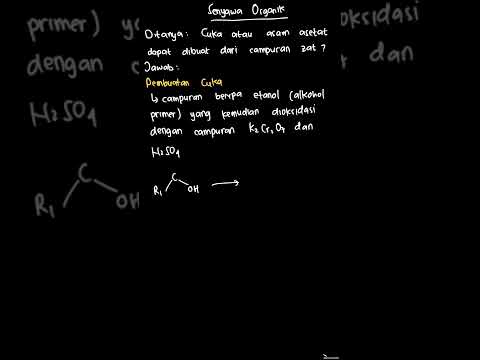 Senyawa Organik
Ditanya: Cuka atau asam asetat
dapat dibuat dari campuran zat?
Jawab:
Pembuatan Cuka
↳ campuran berpa etanol (alkohol
primer) yang kemudian dioksidasi
dengan campuran K₂Cr₂O₇ dan
H₂SO₄
R₁ C OH →